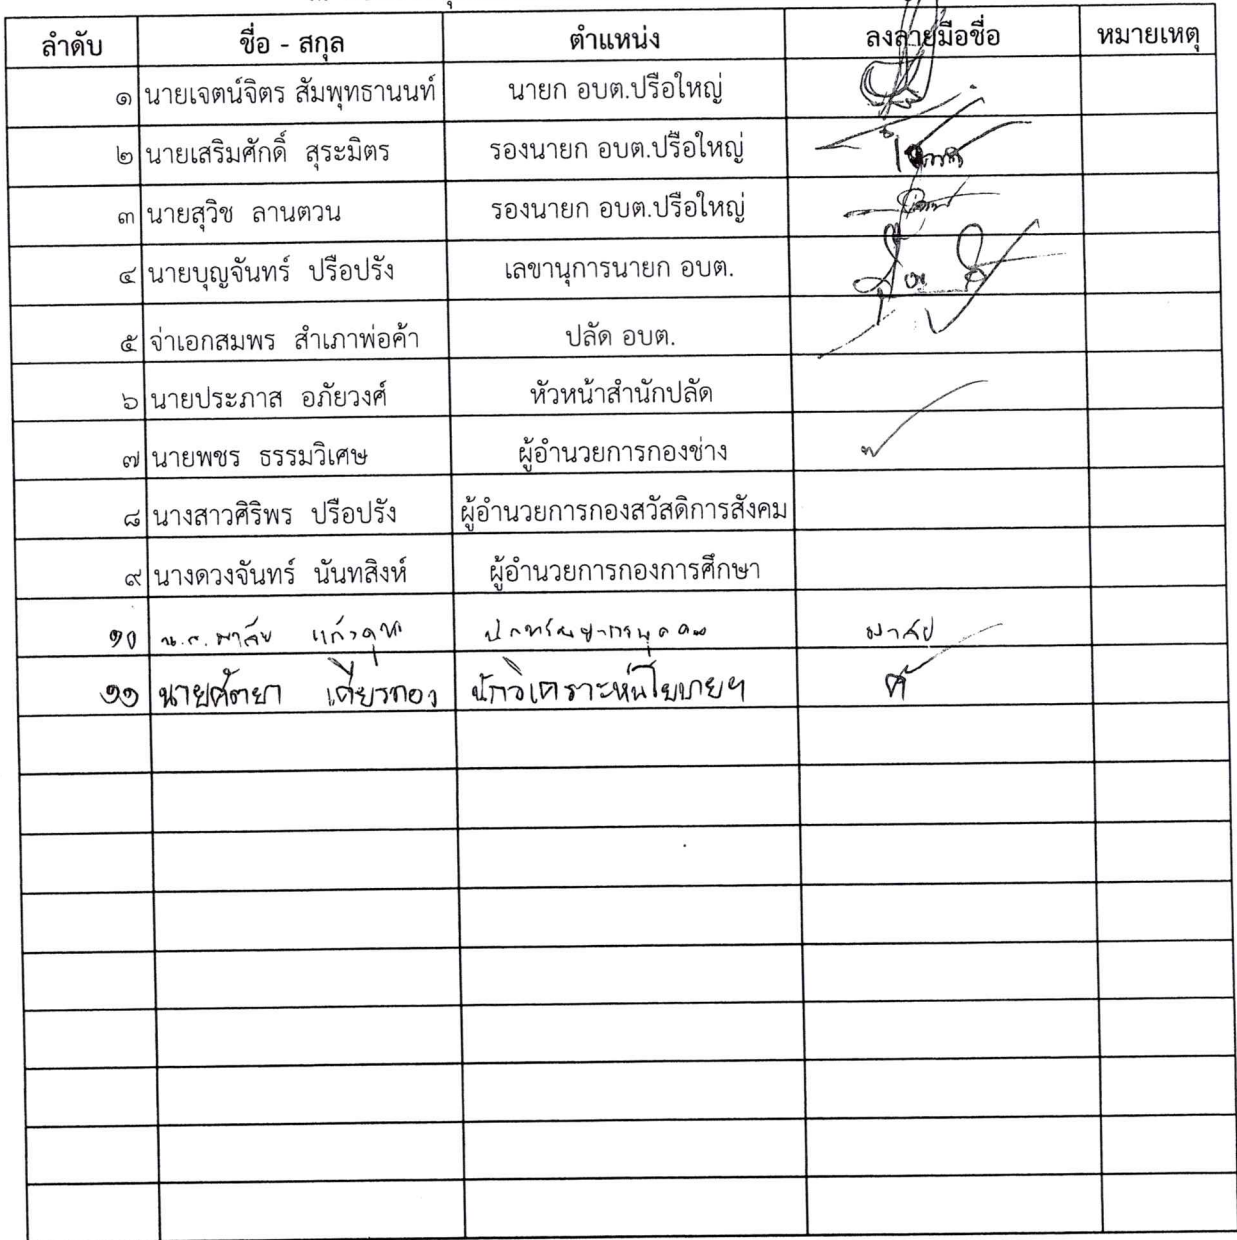 ลำดับ ชื่อ - สกุล ตำแหน่ง ลงลายมือชื่อ หมายเหตุ
๑ นายเจตน์จิตร สัมพุทธานนท์ นายก อบต.ปรือใหญ่
๒ นายเสริมศักดิ์ สุระมิตร รองนายก อบต.ปรือใหญ่
๓ นายสุวิช ลานตวน รองนายก อบต.ปรือใหญ่
๔ นายบุญจันทร์ ปรือปรัง เลขานุการนายก อบต.
๕ จ่าเอกสมพร สำเภาพ่อค้า ปลัด อบต.
๖ นายประภาส อภัยวงศ์ หัวหน้าสำนักปลัด
๗ นายพชร ธรรมวิเศษ ผู้อำนวยการกองช่าง
๘ นางสาวศิริพร ปรือปรัง ผู้อำนวยการกองสวัสดิการสังคม
๙ นางดวงจันทร์ นันทสิงห์ ผู้อำนวยการกองการศึกษา
๑๐ น.ส. มาลัย นักทรัพยากรบุคคล มาลัย
๑๑ นายศัตยา นักวิเคราะห์นโยบายฯ